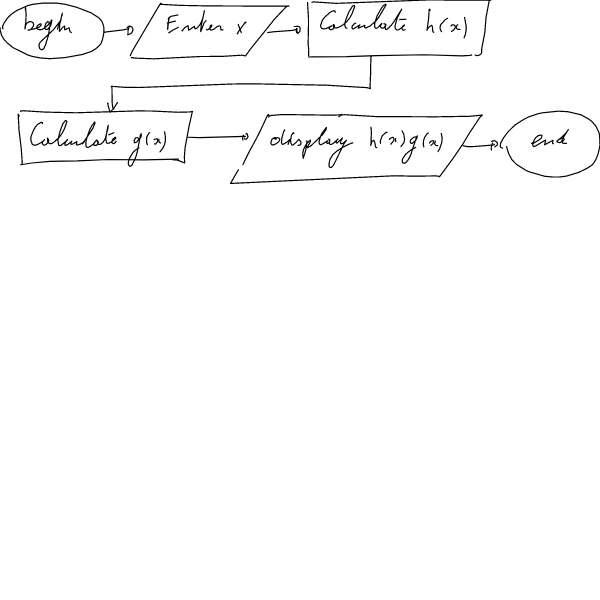 begin Enter x Calculate h(x)
Calculate g(x) display h(x)g(x) end